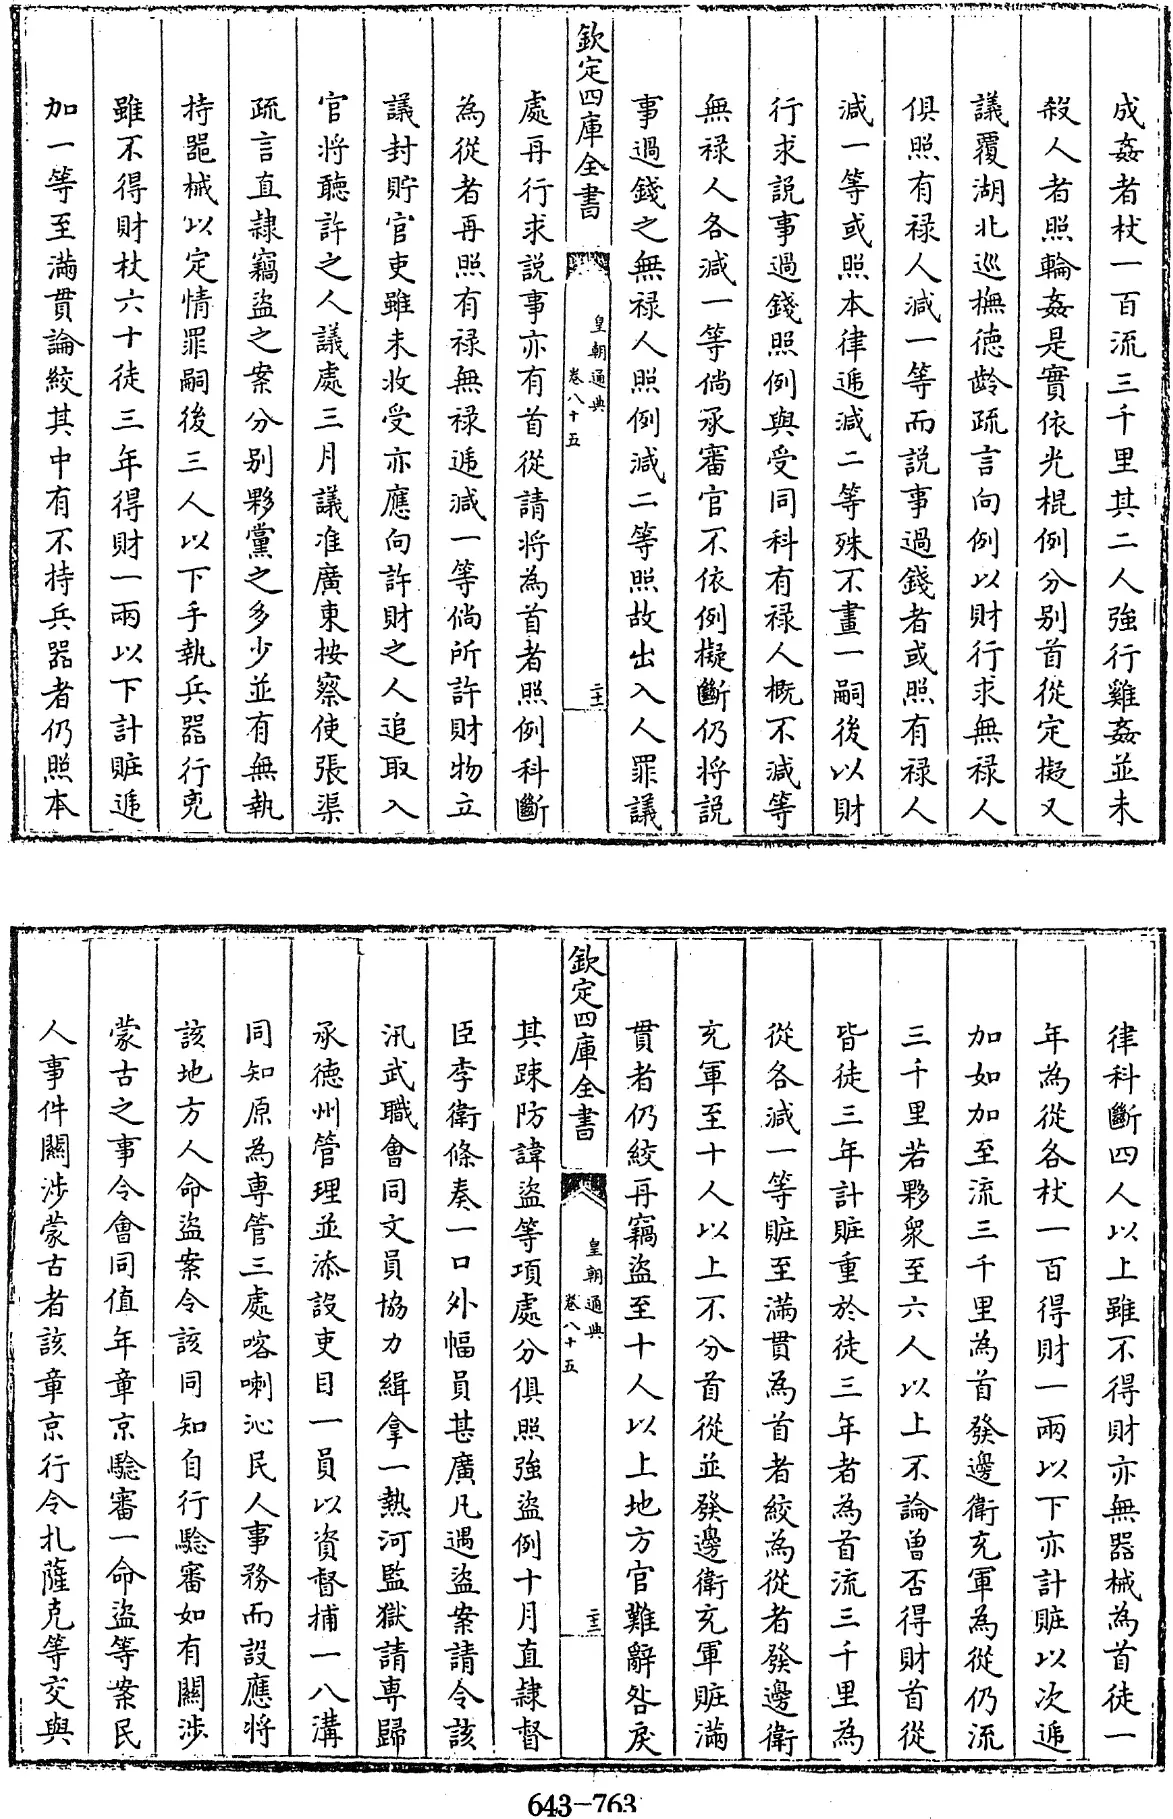 成姦者杖一百流三千里其二人強行雞姦並未
殺人者照輪姦是實依光棍例分别首從定擬又
議覆湖北巡撫徳齡疏言向例以財行求無禄人
俱照有禄人減一等而説事過錢者或照有禄人
減一等或照本律遞減二等殊不畫一嗣後以財
行求説事過錢照例與受同科有禄人概不減等
無禄人各減一等倘承審官不依例擬斷仍将説
事過錢之無禄人照例減二等照故出入人罪議
欽定四庫全書
皇朝通典
卷八十五
二十二
處再行求説事亦有首從請将為首者照例科斷
為從者再照有禄無禄遞減一等倘所許財物立
議封貯官吏雖未收受亦應向許財之人追取入
官将聽許之人議處三月議准廣東按察使張渠
疏言直隷竊盗之案分别夥黨之多少並有無執
持噐械以定情罪嗣後三人以下手執兵器行兇
雖不得財杖六十徒三年得財一兩以下計賍遞
加一等至滿貫論絞其中有不持兵器者仍照本
律科斷四人以上雖不得財亦無器械為首徒一
年為從各杖一百得財一兩以下亦計賍以次遞
加如加至流三千里為首發邊衛充軍為從仍流
三千里若夥衆至六人以上不論曽否得財首從
皆徒三年計賍重於徒三年者為首流三千里為
從各減一等賍至滿貫為首者絞為從者發邊衛
充軍至十人以上不分首從並發邊衛充軍賍滿
貫者仍絞再竊盗至十人以上地方官難辭咎戾
欽定四庫全書
皇朝通典
卷八十五
二十三
其踈防諱盗等項處分俱照強盗例十月直隷督
臣李衛條奏一口外幅員甚廣凡遇盗案請令該
汛武職會同文員協力緝拿一熱河監獄請専歸
承徳州管理並添設吏目一員以資督捕一八溝
同知原為専管三處喀喇沁民人事務而設應将
該地方人命盗案令該同知自行驗審如有關涉
蒙古之事令會同值年章京驗審一命盗等案民
人事件關涉蒙古者該章京行令札薩克等交與
643-763